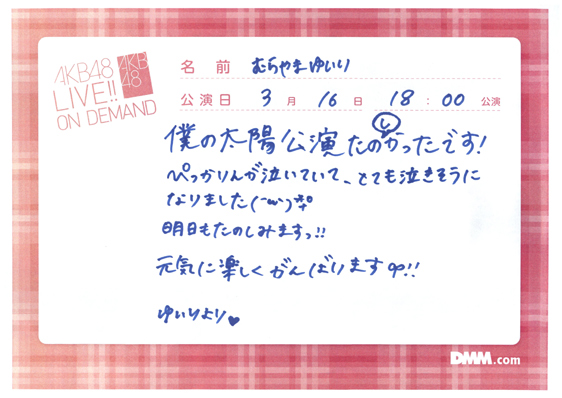 AKB48
LIVE!!
ON DEMAND
AKB
48
名前 むらやまゆいり
公演日 3月16日 18:00公演
僕の太陽公演たのしかったです!
ぴっかりんが泣いていて、とても泣きそうに
なりました
明日もたのしみますっ!!
元気に楽しくがんばります!!
ゆいりより♥
DMM.com